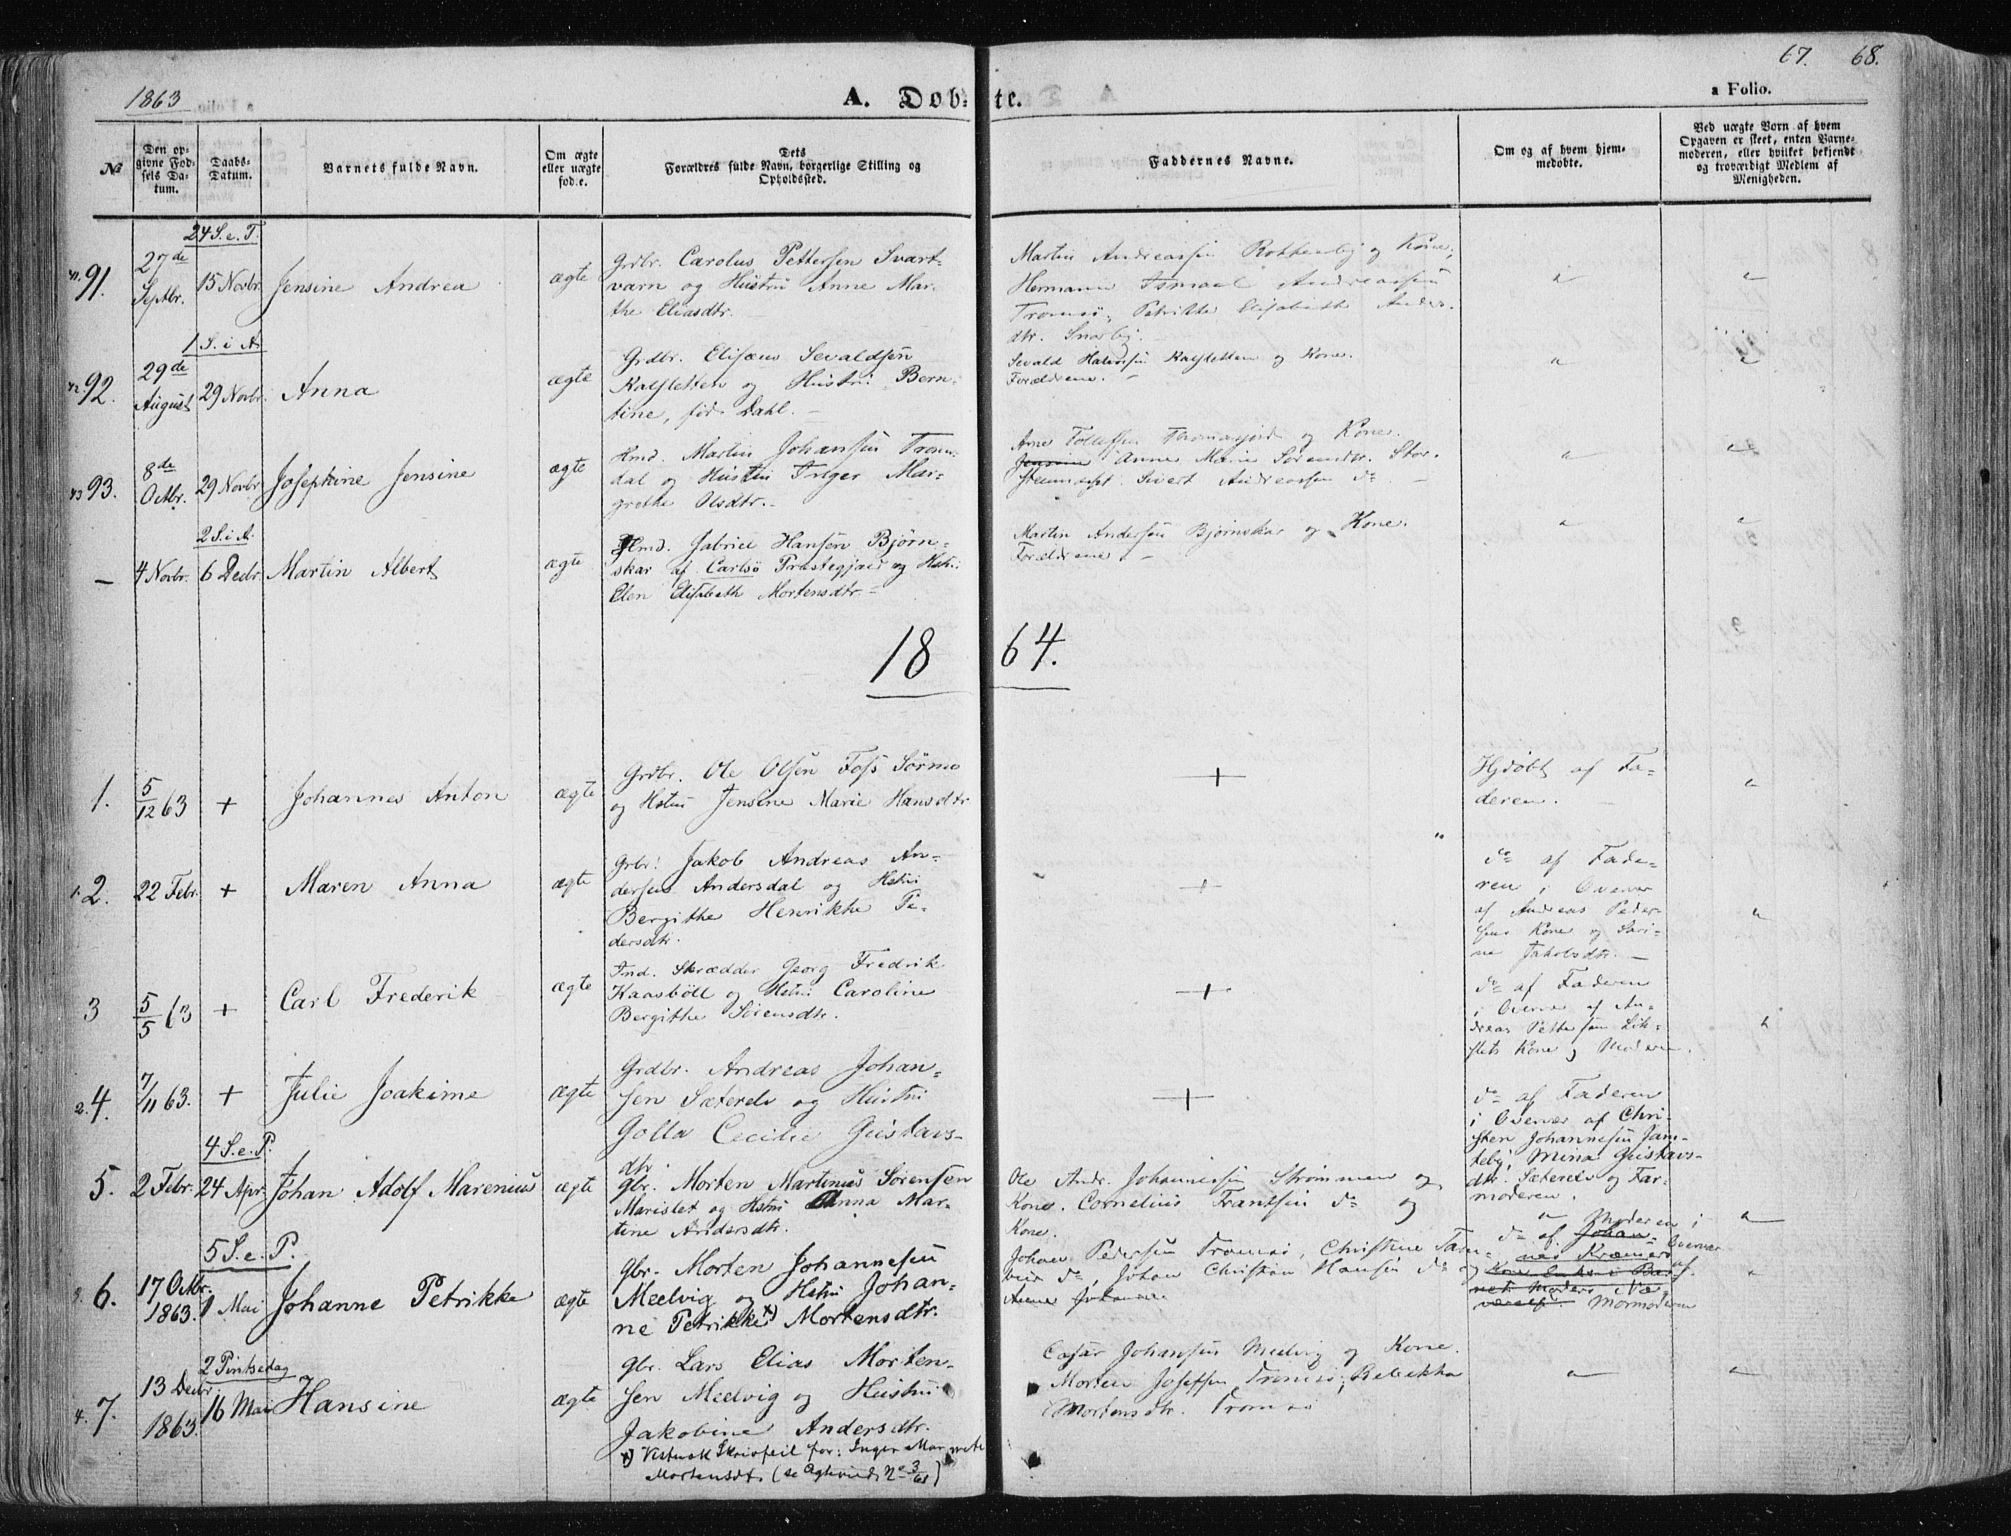 1863
A. Døbte.
67. 68.
a Folio.
№
Den opgivne Fødsels Datum.
Daabs-Datum.
Barnets fulde Navn.
Om ægte eller uægte fød.e.
Dets Forældres fulde Navn, borgerlige Stilling og Opholdssted.
Faddernes Navne.
Om og af hvem hjemmedøbte.
Ved uægte Børn af hvem Opgaven er skeet, enten Barnemoderen, eller hvilket bekjendt og troværdigt Medlem af Menigheden.
24 S. e. T.
91.
27de Septbr.
15 Novbr.
Jensine Andrea
ægte
Grdbr. Carolus Pettersen Svart-
varn og Hustru Anne Mar-
the Eliasdtr.
Martin Andreassen og Kone,
Hermann Ismael Andreassen
Tromsø, Petrikke Elisabeth Anders-
dtr. Snarby.
1 S. i A.
92.
29de August
29 Novbr.
Anna
ægte
Grdbr. Elisæus Sevaldsen
Kalsletten og Hustru Bern-
tine, fød. Dahl.
Sevald Halvorsen Kalsletten og Kone.
Forældrene.
93.
8de Octbr.
29 Novbr.
Josephine Jensine
ægte
Hmd. Martin Johansen Trom-
dal og Hustru Inger Mar-
grethe Olsdtr.
Arne Tollefsen Thomasjord og Kone.
Jensine Anne Marie Sørensdtr. Stor-
steinneset. Sivert Andreassen do
2 S. i A.
–
4 Novbr.
6 Decbr.
Martin Albert
ægte
Hmd. Gabriel Hansen Bjørn-
skar af Carlsø Præstegjæld og Hstru
Elen Elisabeth Mortensdtr.
Martin Andersen Bjørnskar og Kone.
Forældrene
1864.
1.
5/12 63
+
Johannes Anton
ægte
Grdbr. Ole Olsen Foss Sørmo
og Hstru Jensine Marie Hansdtr.
+
Hjdøbt af Fa-
deren.
2.
22 Febr.
+
Maren Anna
ægte
Grbr. Jakob Andreas An-
dersen Andersdal og Hstru
Bergithe Henrikke Pe-
dersdtr.
+
do af Fade-
ren i Overvær
af Andreas Peder-
sens Kone og Seri-
ne Jakobsdtr.
3
5/5 63
+
Carl Frederik
ægte
Ind. Skrædder Georg Fredrik
Kaasbøll og Hstru Caroline
Bergithe Sørensdtr.
+
do af Faderen
i Overvær af An-
dreas Pettersen
Kone og Moderen.
4.
7/11 63.
+
Julie Joakime
ægte
Grdbr. Andreas Johan-
sen Sæterelv og Hustru
Golla Cecilie Gustavs-
dtr.
+
do af Faderen
i Overvær af Chri-
sten Johannesen Jam-
tebj, Mina Gustavs-
dtr. Sæterelv og Far-
moderen.
4 S. e. P.
5.
2 Febr.
24 Apr.
Johan Adolf Marenius
ægte
Gbr. Morten Martinius Sørensen
Marislet og Hstru Anna Mar-
tine Andersdtr.
Ole Andr. Johannessen Strømmen og
Kone. Cornelius Frantsen do og
Kone.
5 S. e. P.
6.
17 Octbr. 1863.
1 Mai
Johanne Petrikke
ægte
Gbr. Morten Johannesen
Meelvig og Hstru Johan-
ne Petrikke x) Mortensdtr.
Johan Pedersen Tromsø, Christine
do, Johan Christian Hansen do og
Anne Johanne
do af Johan- Moderen i
nes Kræmers Overvær
af
Mormoderen
2 Pintsedag
7.
13 Decbr. 1863.
16 Mai
Hansine
ægte
Gbr. Lars Elias Morten-
sen Meelvig og Hustru
Jakobine Andersdtr.
Cæsar Johansen Meelvig og Kone.
Morten Josefsen Tromsø, Rebekka
Mortensdtr. Tromsø
x) Vistnok Skrivfeil for: Inger Margrete
Mortensdtr. (se Ægteviede No 3/61)